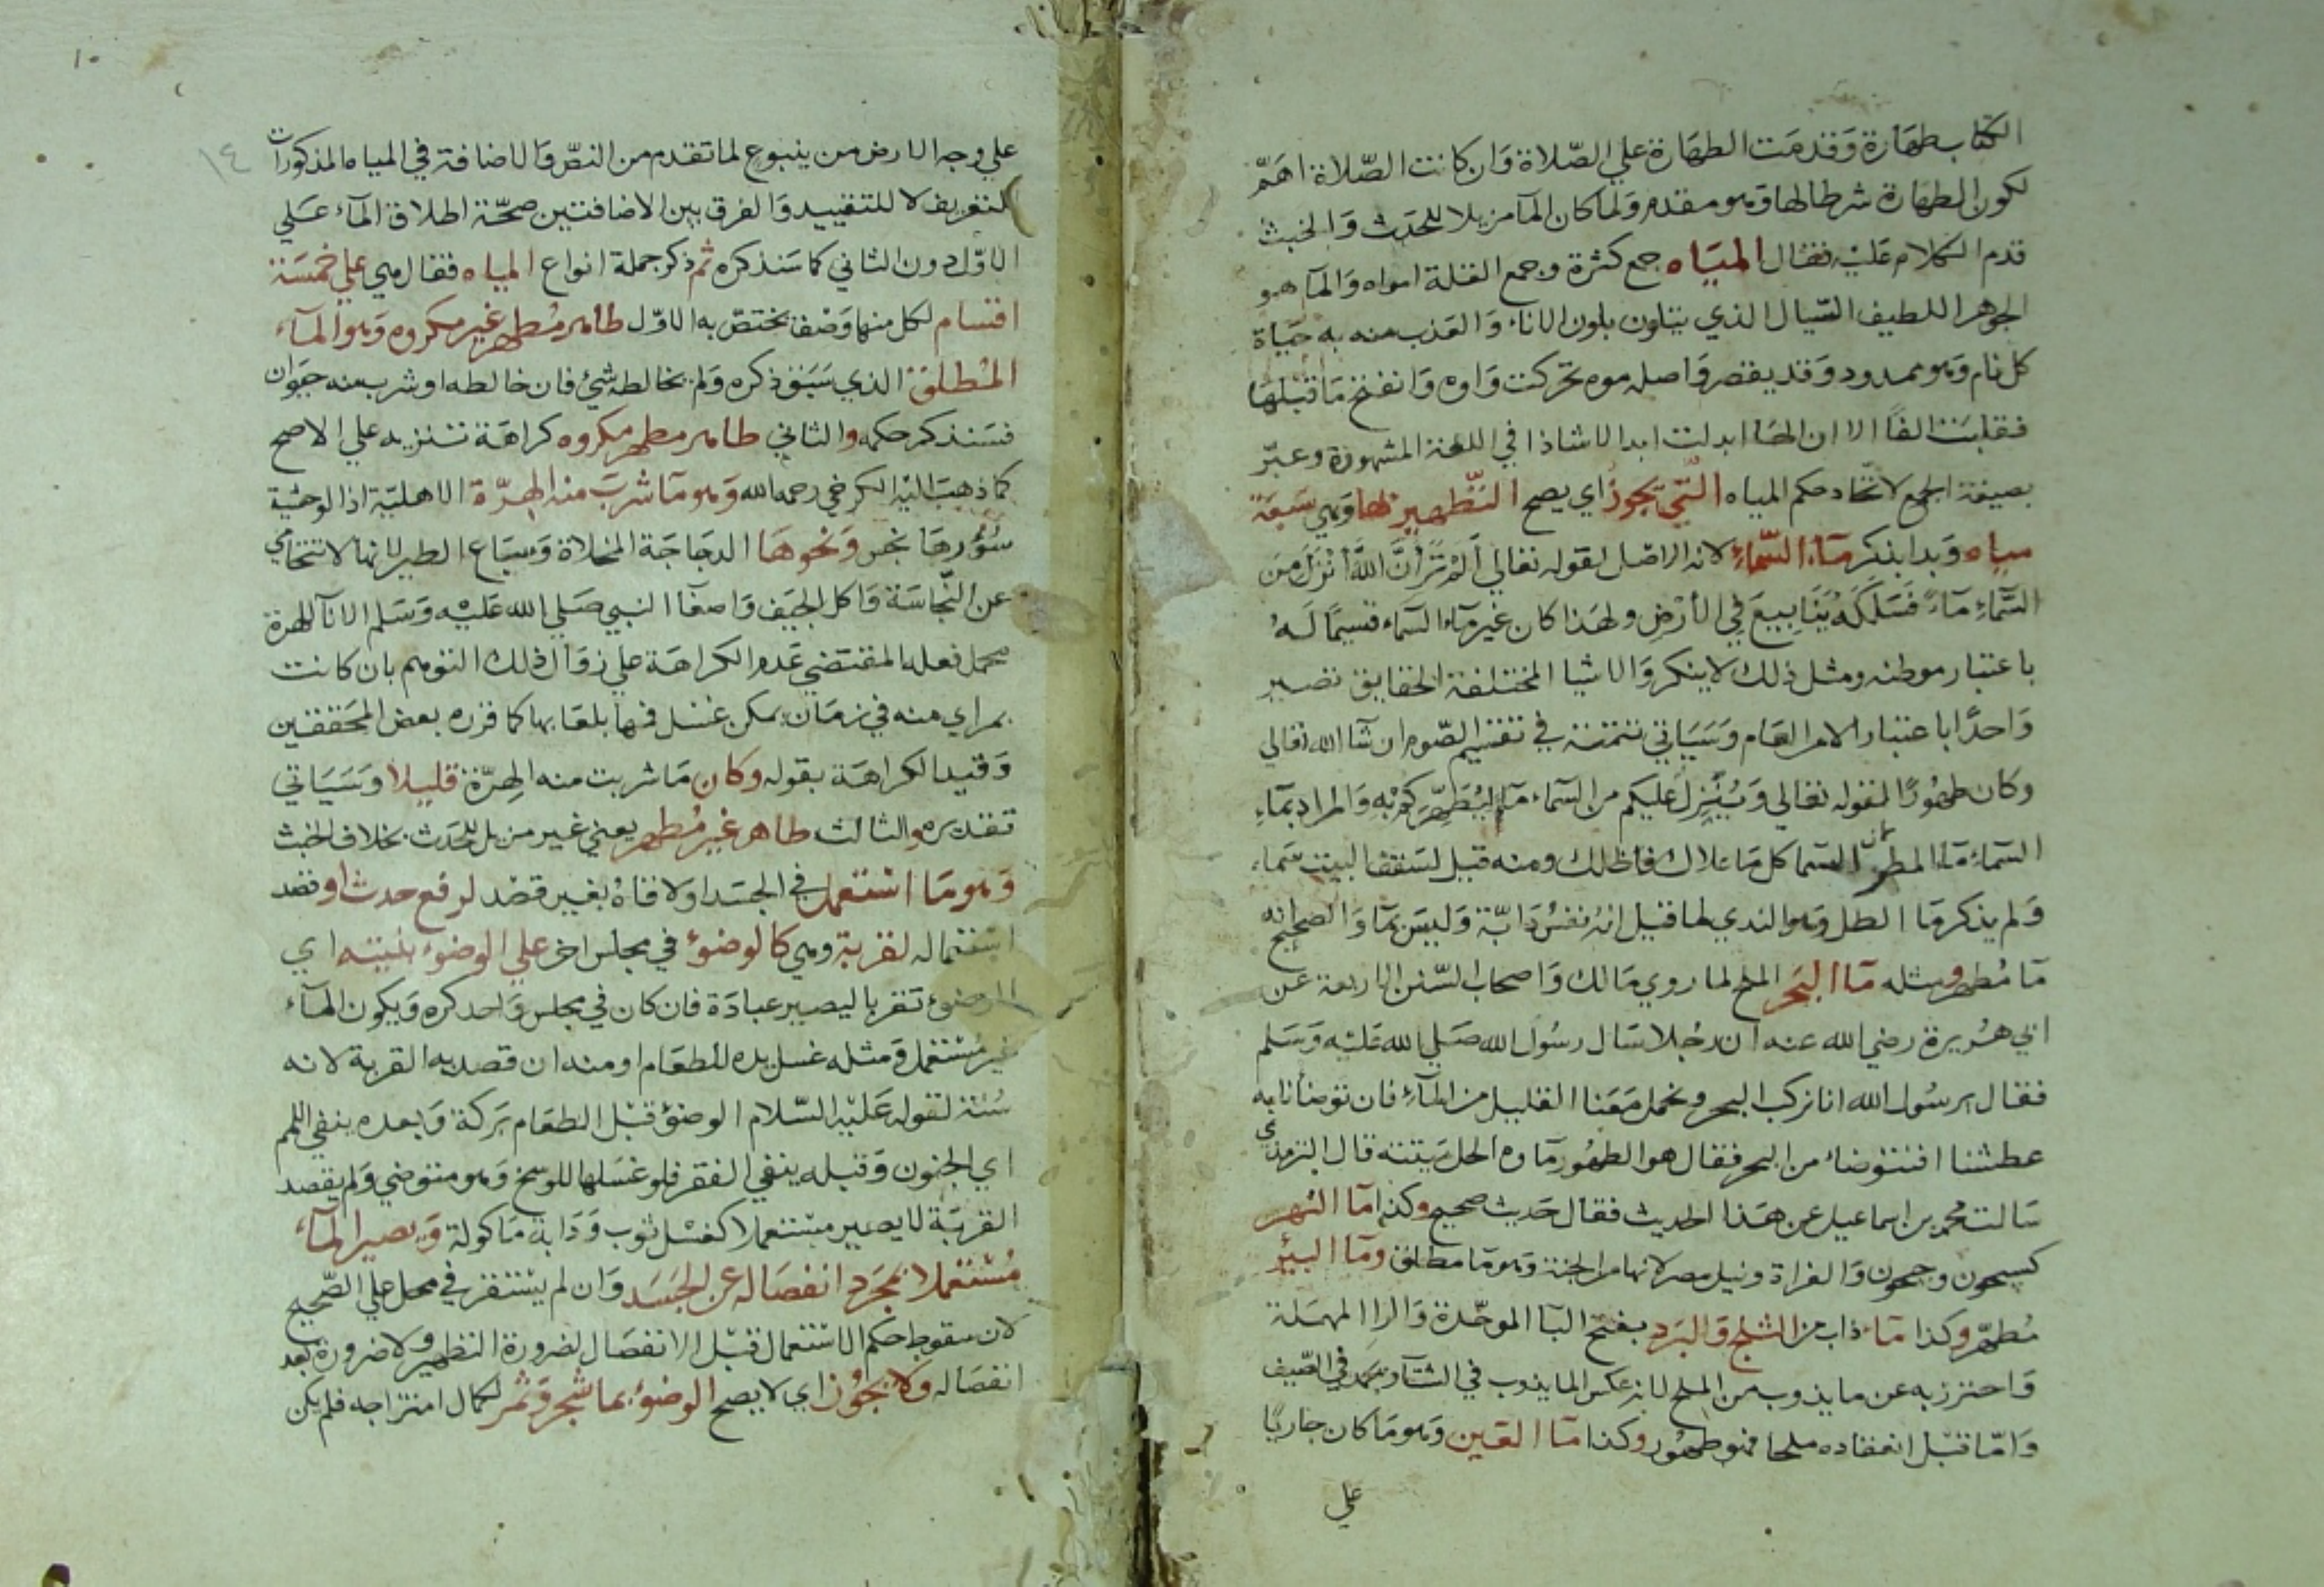 الكتاب طهارة وقدمت الطهارة علي الصلاة وان كانت الصلاة اهم
لكون الطهارة شرطا لها وهو مقدم ولما كان المآ مزيلا للحدث والخبث
قدم الكلام عليه فقال المياه جمع كثرة وجمع القلة امواه والمآ هو
الجوهر اللطيف السّيال الذي يتلون بلون الاناء والعذب منه به حيَاة
كل نام وهو ممدود وقد يقصر واصله موه تحركت واوه وانفتح ما قبلها
فقلبت الفاً الا ان الهَا ابدلت ابدالا شاذا في اللغة المشهورة وعبّر
بصيغة الجمع لاتحاد حكم المياه التي تجوز اي يصح التَّطهير بها وهي سَبعَة
مياه وَبدا بذكر مَاء السَّماءِ لانه الاصل لقوله تعالي أَلَمْ تَرَ أَنَّ اللَّهَ أَنْزَلَ مِنَ
السَّمَاءِ مَاءً فَسَلَكَهُ يَنَابِيعَ فِي الأَرْضِ ولهذا كان غير مآء السّماء قسيمًا لَهُ
باعتبار موطنه ومثل ذلك لا ينكر والاشيا المختلفة الحقايق تصير
وَاحدًا باعتبار الامر العَام وَسَيَاتي تتمته في تقسيم الصّوم ان شآ الله تعالي
وكان طهُورًا لقوله تعالي وَيُنَزِّلُ عَليكم من السّماء مآء لِيُطَهِّرَكُمْ بِهِ وَالمراد بمآءِ
السّماءِ مَاء المطر لان السّما كل مَا علاك فاظلك ومنه قيل لسَقف البيت سَماء
وَلم يذكر مَا الطل وهو الندي لما قيل انهُ نفسُ دَابّة وَليسَ بمآ وَالصحيح انه
مآ مُطهر ومثله مَآ البَحر الملح لما روي مَالك وَاصحاب السّنن الاربعة عن
ابي هُريرة رضي الله عنه ان رجُلا سَال رسُول الله صَلي الله عَليْه وَسَلم
فقال يرسُول الله انا نركب البحر ونحمل مَعَنا القليل من المآءِ فان توضأنا به
عطشنا افنتوضاء من البحر فقال هو الطهُور مآوه الحل ميتته قال الترمذي
سَالت محمد بن اسماعيل عن هَذا الحديث فقال حَديث صحيح وكذا مآ النهر
كسيحون وجيحون وَالفراة ونيل مصر لانها من الجنة وهو مَا مطلق ومَا البيْر
مُطهّر وكذا مَاء ذاب من الثلج وَالبَرَد بفتح البآ الموحّدة وَالرا المهمَلة
وَاحترز به عن ما يذوب من الملح لانه عكس الما يذوب في الشتآ ويجمد في الصّيف
وَامّا قبْل انعقاده ملحا فهو طهُور وكذا مَا العَين وهو مَا كان جاريًا
علي
١٠
١٤
علي وجه الارض من ينبوع لما تقدم من النصّ وَالاضافة في المياه المذكورات
للتعريف لا للتقييد وَالفرق بين الاضافتين صحّة اطلاق المآء عَلي
الاوّل دون الثاني كما سَنذكره ثم ذكر جملة انواع المياه فقال هي علي خمسَة
اقسام لكل منها وَصْف يختصّ به الاوّل طاهر مُطهر غير مكروه وَهو المآء
المُطلق الذي سَبَق ذكره وَلم يخالطه شيْ فان خالطه او شرب منه حيَوان
فسَنذكر حكمه والثاني طاهر مطهر مكروه كراهَة تنزيه علي الاصح
كما ذهبَ اليْه الكرخي رحمه الله وَهو مَا شربَ منه الهِرّة الاهليّة اذ الوحشيَّة
سُؤرهَا نجس وَنحوهَا الدجَاجَة المخلاة وَسبَاع الطير لانها لا تتحَامي
عن النّجاسَة وَاكل الجيَف وَاصغآ النبي صَلي الله عَليْه وَسَلم الانآ للهرة
محمل فعله المقتضي عَدم الكراهَة علي زوَال ذلك التوهم بان كانت
بمراي منه في زمَان يمكن غسل فمهَا بلعَابها كما قرره بعض المحَققين
وَقيد الكراهَة بقوله وكان مَا شربت منه الهِرّة قليلا وَسَيَاتي
تقديره والثالث طاهر غير مُطهر يعني غير مزيل للحَدث بخلاف الخبث
وَهو مَا اسْتعمل في الجسَد او لاقاهُ بغير قصْد لرفع حدث او قصد
اسْتعماله لقربة وهي كالوضوءِ في مجلس اخر علي الوضوء بنيته اي
الوضوء تقربا ليصير عبَادَة فان كان في مجلس وَاحد كره وَيكون المآء
غير مُسْتعمل وَمثله غسل يده للطعَام او منه ان قصد به القربة لانه
سُنّة لقوله عَليْه السّلام الوضوْ قبْل الطعَام بَركة وَبعده ينفي اللمم
اي الجنون وَقبله ينفي الفقر فلو غسَلها للوسخ وَهو متوضي وَلم يقصد
القربَة لا يصير مسْتعملا كغسْل ثوب وَدَابة مَاكولة وَيصير المآء
مُسْتعملا بمجَرد انفصَاله عن الجَسَد وَان لم يسْتقر في محل علي الصّحيح
لان سقوط حكم الاسْتعمال قبْل الانفصَال لضرورة التطهير ولا ضرورة بعد
انفصَاله وَلا يجُوز اي لا يصح الوضوءُ بما شجر وَثمر لكمال امتزاجه فلم يكن